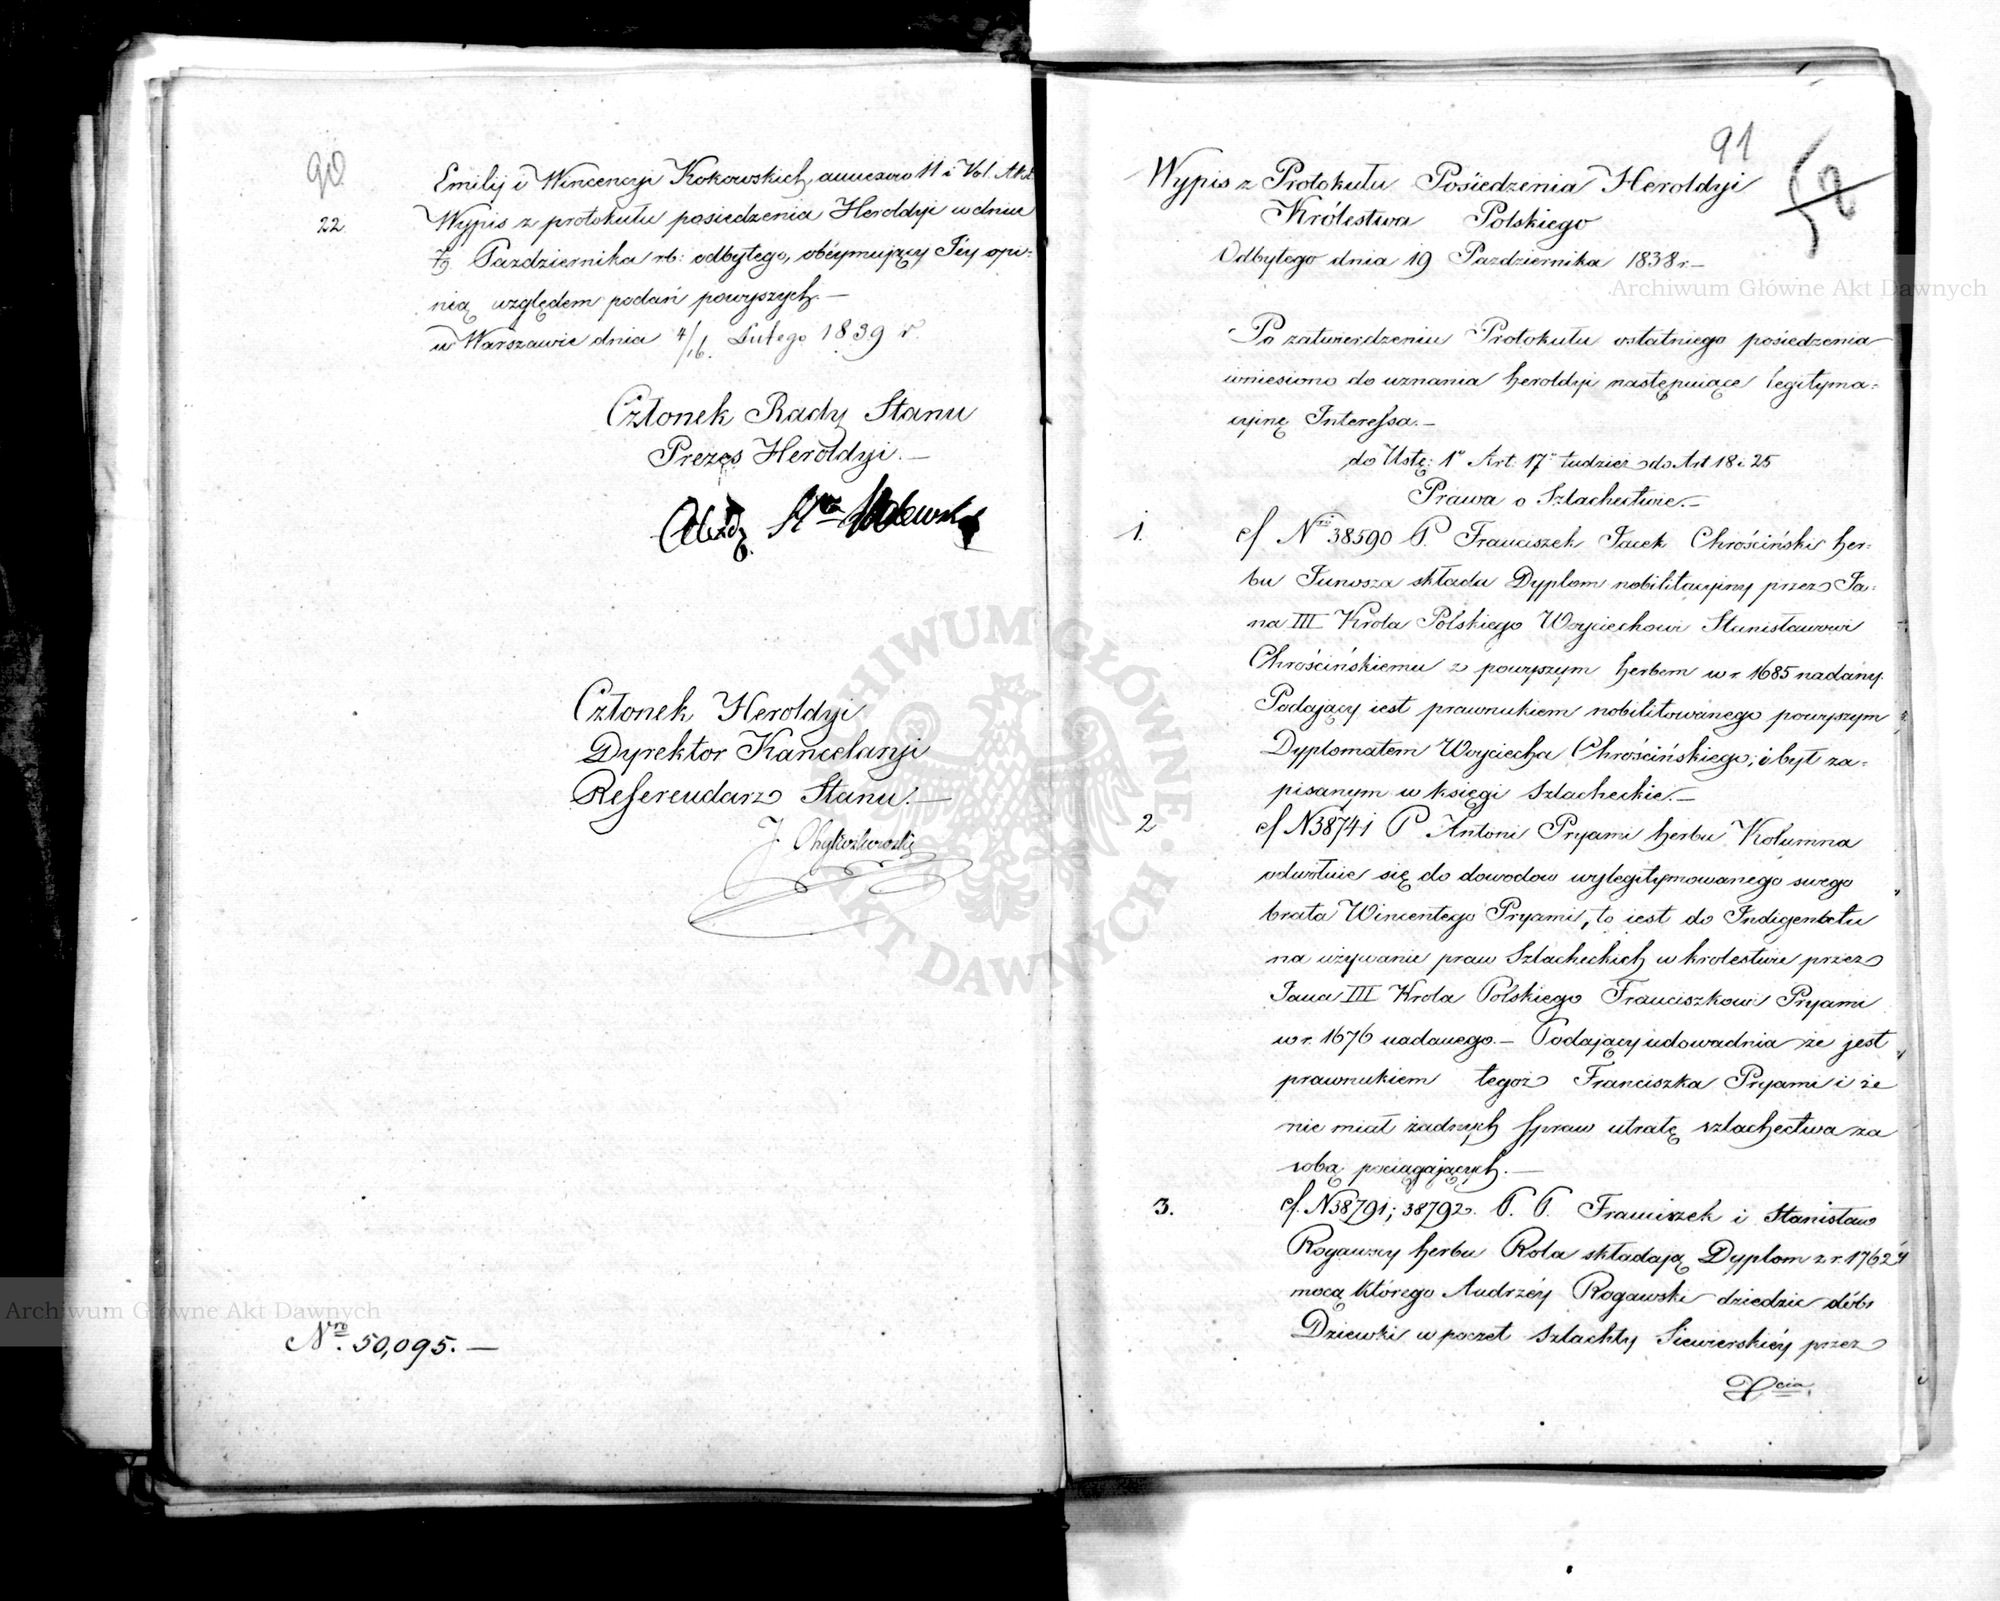 90
Emilij i Wincencyi Kokowskich, annexów 11 i Vol. Akt
22. Wypis z protokułu posiedzenia Heroldyi w dniu
7/19. Pazdziernika rb: odbytego, obéymujący Jéy opi=
nią względem podań powyszych.—
w Warszawie dnia 4/16. Lutego 1839 r.
Członek Rady Stanu
Prezes Heroldyi.—
Alexdr.
Członek Heroldyi
Dyrektor Kancelaryi
Referendarz Stanu.—
Nro. 50,095.—
91
Wypis z Protokułu Posiedzenia Heroldyi
Królestwa Polskiego
Odbytego dnia 19 Pazdziernika 1838 r.—
Po zatwierdzeniu Protokułu ostatniego posiedzenia
wniesiono do uznania heroldyi następuiące legityma=
cyjnę Interessa.—
do Ustę: 1o Art: 17o tudzież do Art 18 i 25
Prawa o Szlachectwie.—
1. ef Nro 38590 P. Franciszek Jacek Chrościński her=
bu Junosza składa Dyplom nobilitacyiny przez Ja=
na III Krola Polskiego Woyciechowi Stanisławowi
Chrościńskiemu z powyszym herbem w r. 1685 nadany.
Podaiący iest prawnukiem nobilitowanego powyszym
Dyplomatem Woyciecha Chrościńskiego; i był za=
pisanym w księgi Szlacheckie.—
2 ef N38741 P Antoni Pryami herbu Kolumna
odwołuie się do dowodow wylegitymowanego swego
brata Wincentego Pryami, to iest do Indigenatu
na używanie praw Szlacheckich w krolestwie przez
Jana III Krola Polskiego Franciszkowi Pryami
w r. 1676 nadanego.— Podający udowadnia że jest
prawnukiem tegoż Franciszka Pryami i że
nie miał żadnych spraw utratę szlachectwa za
sobą pociągających.—
3. ef. N38791; 38792. P. P. Franciszek i Stanisław
Rogawscy herbu Rola składają Dyplom z r. 1762
mocą którego Andrzéy Rogawski dziedzic dóbr
Dziewki w poczet Szlachty Siewierskiéy przez
Xcia
Archiwum Główne Akt Dawnych
Archiwum Główne Akt Dawnych
ARCHIWUM GŁÓWNE AKT DAWNYCH